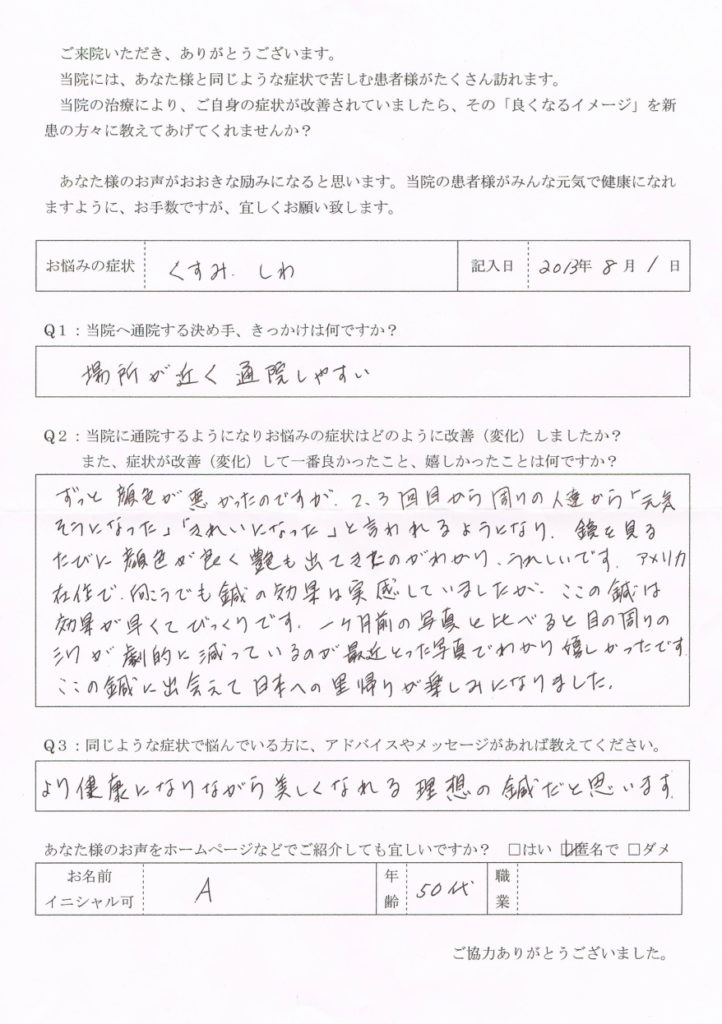 ご来院いただき、ありがとうございます。
当院には、あなた様と同じような症状で苦しむ患者様がたくさん訪れます。
当院の治療により、ご自身の症状が改善されていましたら、その「良くなるイメージ」を新
患の方々に教えてあげてくれませんか？
あなた様のお声がおおきな励みになると思います。当院の患者様がみんな元気で健康になれ
ますように、お手数ですが、宜しくお願い致します。
お悩みの症状 くすみ. しわ 記入日 2013年 8月 1日
Q1：当院へ通院する決め手、きっかけは何ですか？
場所が近く 通院しやすい
Q2：当院に通院するようになりお悩みの症状はどのように改善（変化）しましたか？
また、症状が改善（変化）して一番良かったこと、嬉しかったことは何ですか？
ずっと 顔色が 悪かったのですが、2、3回目から 周りの 人達から「元気
そうになった」「きれいになった」と言われるようになり、鏡を見る
たびに 顔色が良く 艶も出てきたのがわかり、うれしいです。アメリカ
在住で、向こうでも鍼の効果は実感していましたが、ここの鍼は
効果が早くてびっくりです。一ケ月前の写真と比べると目の周りの
シワが劇的に減っているのが最近とった写真でわかり嬉しかったです
ここの鍼に出会えて日本への里帰りが楽しみになりました。
Q3：同じような症状で悩んでいる方に、アドバイスやメッセージがあれば教えてください。
より健康になりながら美しくなれる 理想の鍼だと思います。
あなた様のお声をホームページなどでご紹介しても宜しいですか？ □はい ☑匿名で □ダメ
お名前 イニシャル可 A 年齢 50代 職業
ご協力ありがとうございました。